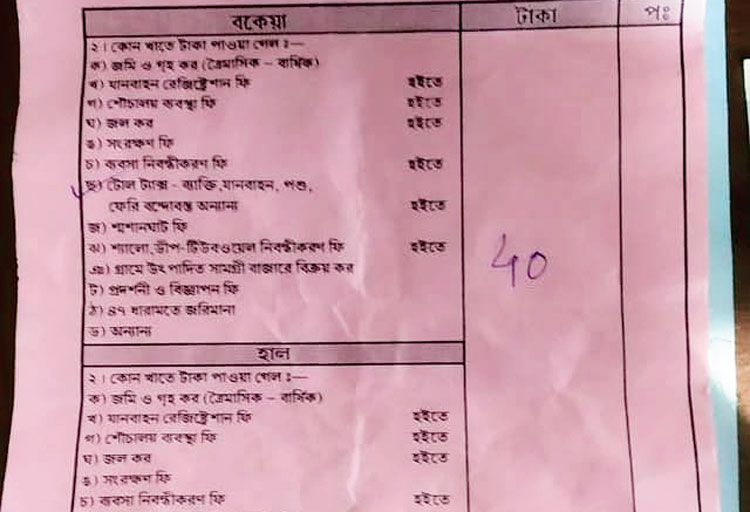 বকেয়া টাকা পঃ
২। কোন খাতে টাকা পাওয়া গেল ঃ—
ক) জমি ও গৃহ কর (ত্রৈমাসিক – বার্ষিক)
খ) যানবাহন রেজিষ্ট্রেশান ফি হইতে
গ) শৌচালয় ব্যবস্থা ফি হইতে
ঘ) জল কর হইতে
ঙ) সংরক্ষণ ফি
চ) ব্যবসা নিবন্ধীকরণ ফি হইতে
ছ) টোল ট্যাক্স - ব্যাক্তি, যানবাহন, পশু,
ফেরি বন্দোবস্ত অন্যান্য হইতে
জ) শ্মশানঘাট ফি
ঝ) শ্যালো, ডীপ-টিউবওয়েল নিবন্ধীকরণ ফি হইতে
ঞ) গ্রামে উৎপাদিত সামগ্রী বাজারে বিক্রয় কর
ট) প্রদর্শনী ও বিজ্ঞাপন ফি
ঠ) ৪৭ ধারামতে জরিমানা
ড) অন্যান্য
40
হাল
২। কোন খাতে টাকা পাওয়া গেল ঃ—
ক) জমি ও গৃহ কর (ত্রৈমাসিক – বার্ষিক)
খ) যানবাহন রেজিষ্ট্রেশান ফি হইতে
গ) শৌচালয় ব্যবস্থা ফি হইতে
ঘ) জল কর হইতে
ঙ) সংরক্ষণ ফি
চ) ব্যবসা নিবন্ধীকরণ ফি হইতে